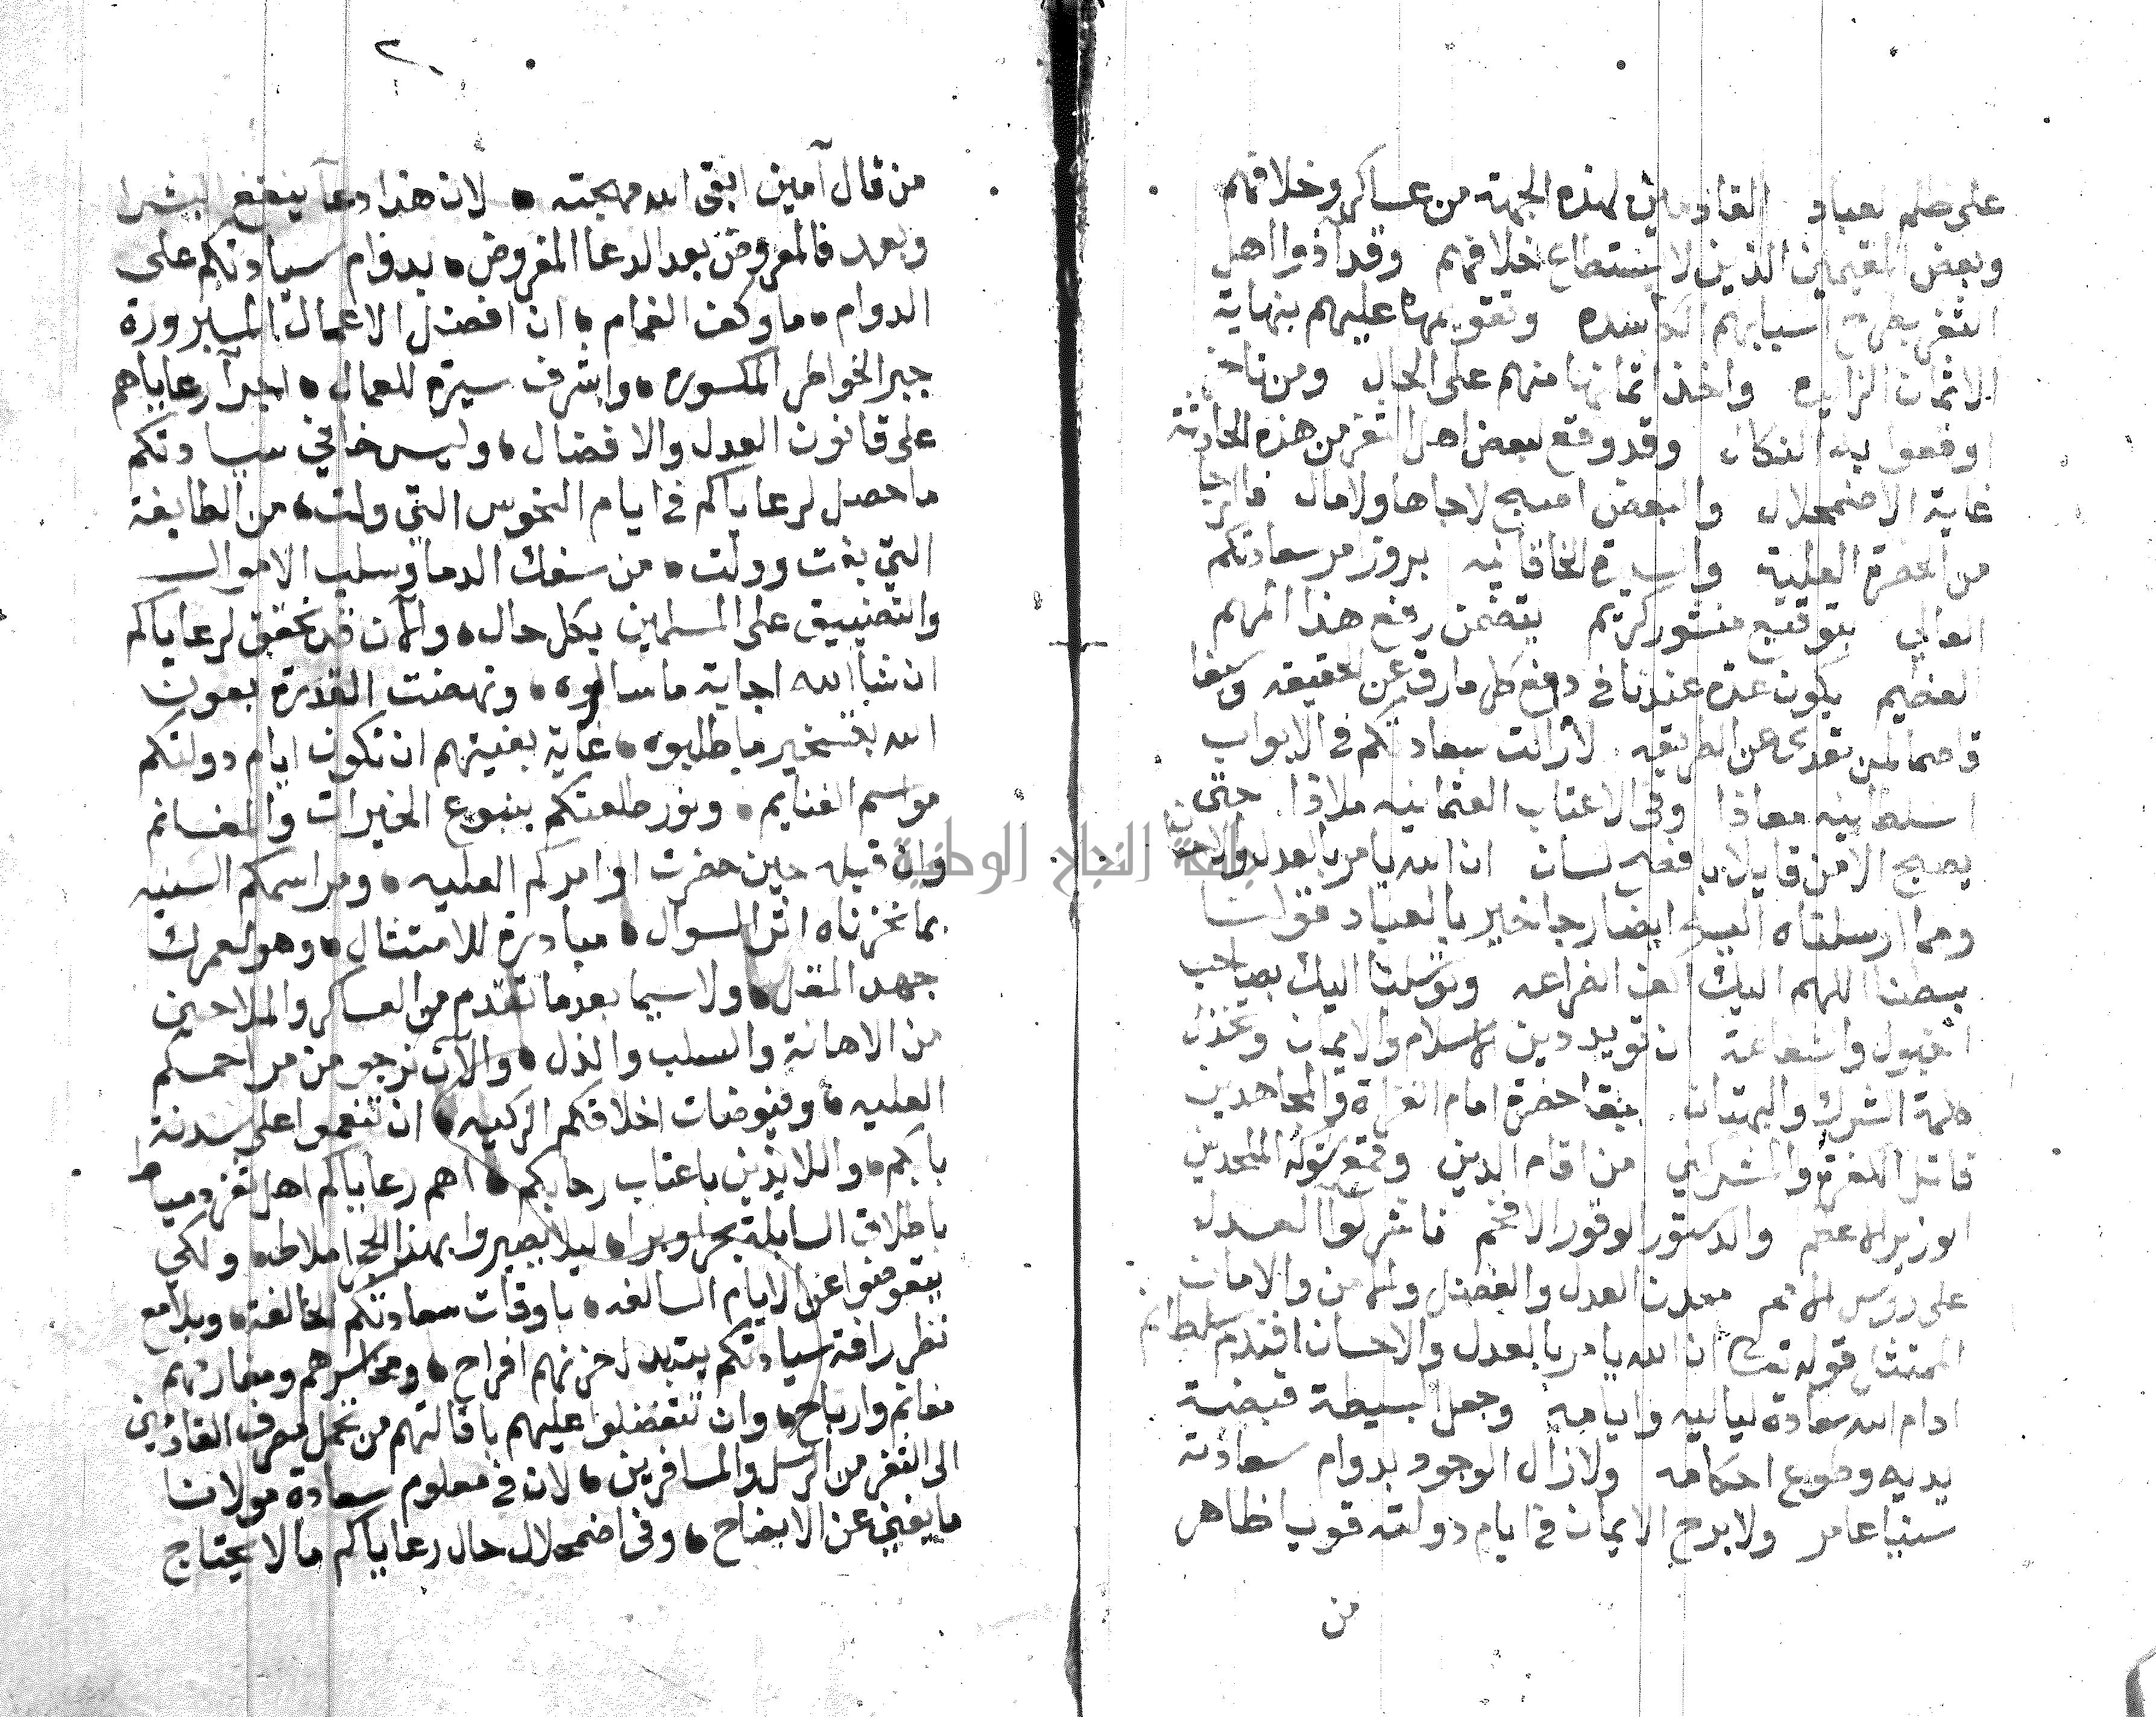 على ظلم العباد القادمين لهذه الجهة من عساكر وخلافهم
وبعض المقيمين الذين لا يستطاع خلافهم وقد اذوا اهل
الثغر بطرح اسبابهم الكاسده وتقويمها عليهم بنهاية
الاثمان الزايده واخذ اثمانها منهم على الحال ومن تاخر
اوقعوا به النكال وقد وقع لبعض اهل الثغر من هذه الحادثة
غاية الاضمحلال والبعض اصبح لا جاها ولا مال فالرجا
من الحضرة العلية والسيرة الخاقانيه بروز امر سعادتكم
العالي بتوقيع منشور كريم يتضمن رفع هذا المهم
العظيم يكون عدة عندنا في دفع كل مارق عن الحقيقه وسيفا
قاصما لمن تعدى عن الطريقه لا زالت سعادتكم في الابواب
السلطانيه معاذا وفي الاعتاب العثمانيه ملاذا حتى
يصبح الامن قايلا بافصح لسان ان الله يامر بالعدل والاحسان
ومما ارسلناه اليه ايضا رجا خير بالعباد قولنا
بسطنا اللهم اليك اكف الضراعه وتوسلنا اليك بصاحب
القبول والشفاعة ان تويد دين الاسلام والايمان وتخذل
كلمة الشرك والبهتان ببقا حضرة امام الغزاة والمجاهدين
قاتل الكفرة والمشركين من اقام الدين وقمع شوكة الملحدين
الوزير الاعظم والدستور الوقور الافخم ناشر لوا العدل
على روس الامم معدن العدل والفضل والامن والامان
الممتثل قوله تعالى ان الله يامر بالعدل والاحسان افندم سلطانم
ادام الله سعادة لياليه وايامه وجعل البسيطة قبضة
يديه وطوع احكامه ولا زال الوجود بدوام سعادته
سنيا عامر ولا برح الايمان في ايام دولته قويا ظاهر
من
٢
من قال آمين ابقى الله مهجته لان هذا دعآ ينفع البشرا
وبعد فالمعروض بعد الدعا المفروض بدوام سيادتكم على
الدوام ما وكف الغمام ان افضل الاعمال المبرورة
جبر الخواطر المكسوره واشرف سيرة للعمال اجرآ رعاياهم
على قانون العدل والافضال وليس خافي سيادتكم
ما حصل لرعاياكم في ايام النحوس التي ولت من الطايفة
التي بغت وولت من سفك الدما وسلب الاموال
والتضييق على المسلمين بكل حال والآن قد تحقق لرعاياكم
ان شا الله اجابة ما سالوه ونهضت القدرة بعون
الله بتسخير ما طلبوه غاية بغيتهم ان تكون ايام دولتكم
مواسم الغنايم ونور طلعتكم ينبوع الخيرات والمغانم
وان قيله حين حضرت اوامركم العليه ومراسمكم السنيه
بما نحزناه اثر السوال مبادرة للامتثال وهو لعمرك
جهد المقل ولا سيما بعد ما تقدم من العساكر والملاحين
من الاهانة والسلب والذل والآن نرجو من مراحمكم
العليه وفيوضات اخلاقكم الزكيه ان تنعموا على سدنة
بابكم واللايذين باعتاب رحابكم اهم رعاياكم اهل ثغر دمياط
باطلاق السابلة بحرا وبرا ليلا يصيروا بهذا الحجر املاطه ولكي
يتعوضوا عن الايام السالفه باوقات سعادتكم الخالفة وبلامع
نظر رافة سيادتكم يتبدل حزنهم افراح ومخاسرهم ومضارتهم
مغانم وارباح وان تتفضلوا عليهم باقالتهم من تحمل مصرف القادمين
الى الثغر من الرسل والمسافرين لان في معلوم سعادة مولانا
ما يغني عن الايضاح وفي اضمحلال حال رعاياكم ما لا يحتاج
جامعة النجاح الوطنية